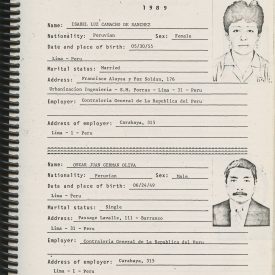 1989
Name: ISABEL LUZ CAMACHO DE SANCHEZ
Nationality: Peruvian Sex: Female
Date and place of birth: 05/30/55
Lima - Peru
Marital status: Married
Address: Francisco Alayza y Paz Soldan, 176
Urbanizacion Ingenieria - S.M. Porras - Lima - 31 - Peru
Employer: Contraloria General de la Republica del Peru
Address of employer: Carabaya, 315
Lima - 1 - Peru
Name: OSCAR JUAN GERMAN OLIVA
Nationality: Peruvian Sex: Male
Date and place of birth: 06/24/49
Lima - Peru
Marital status: Single
Address: Passage Lavalle, 111 - Barranco
Lima - 31 - Peru
Employer: Contraloria General de la Republica del Peru
Address of employer: Carabaya, 315
Lima - 1 - Peru